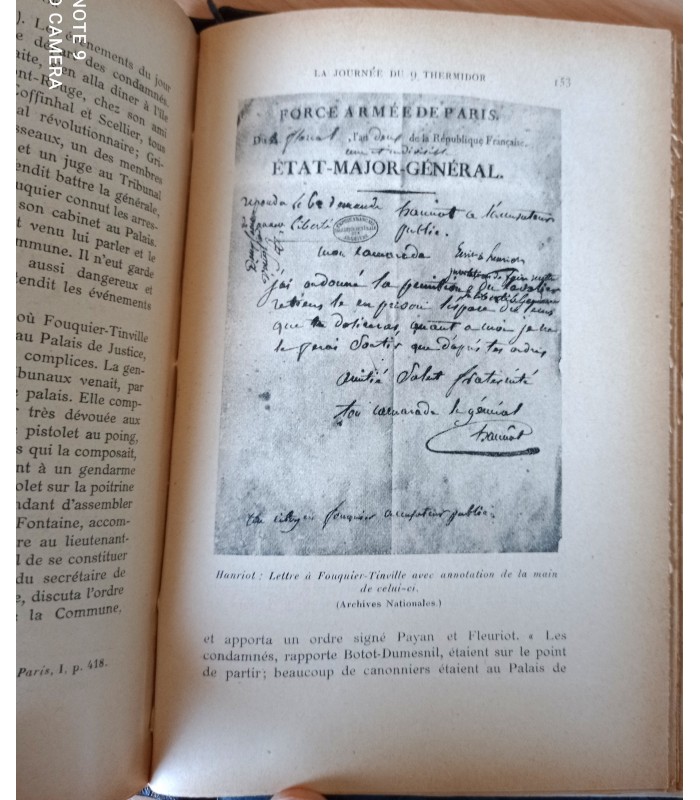 NOTE 9
CAMERA
). Les événements du jour
des condamnés.
aite, s'en alla dîner à l'île
nt-Rouge, chez son ami
Coffinhal et Scellier, tous
al révolutionnaire; Gri-
sseaux, un des membres
et un juge au Tribunal
endit battre la générale,
uquier connut les arres-
son cabinet au Palais.
t venu lui parler et le
mmune. Il n'eut garde
aussi dangereux et
tendit les événements
où Fouquier-Tinville
au Palais de Justice,
complices. La gen-
ibunaux venait, par
palais. Elle comp-
très dévouée aux
pistolet au poing,
s qui la composait,
nt à un gendarme
olet sur la poitrine
ndant d'assembler
Fontaine, accom-
re au lieutenant-
l de se constituer
du secrétaire de
e, discuta l'ordre
à la Commune.
Paris, I, p. 418.
LA JOURNÉE DU 9 THERMIDOR 153
FORCE ARMÉE DE PARIS.
l'an deux de la République Française,
une et indivisible
ÉTAT-MAJOR-GÉNÉRAL.
hanriot a l'acusateur
public.
mon camarade
j'ai ordonné la punition du cavalier
retiens le en prison l'espace du tems
que tu voudras, quant a moi je ne
le ferai sortir que d'apres tes ordres
amitié Salut fraternité
ton camarade le général
hanriot
au citoyen fouquier acusateur public.
Hanriot : Lettre à Fouquier-Tinville avec annotation de la main
de celui-ci.
(Archives Nationales.)
et apporta un ordre signé Payan et Fleuriot. « Les
condamnés, rapporte Botot-Dumesnil, étaient sur le point
de partir; beaucoup de canonniers étaient au Palais de